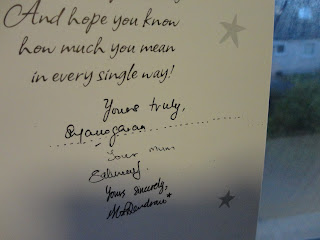 And hope you know
how much you mean
in every single way!
Yours truly,
Your mum
Yours sincerely,